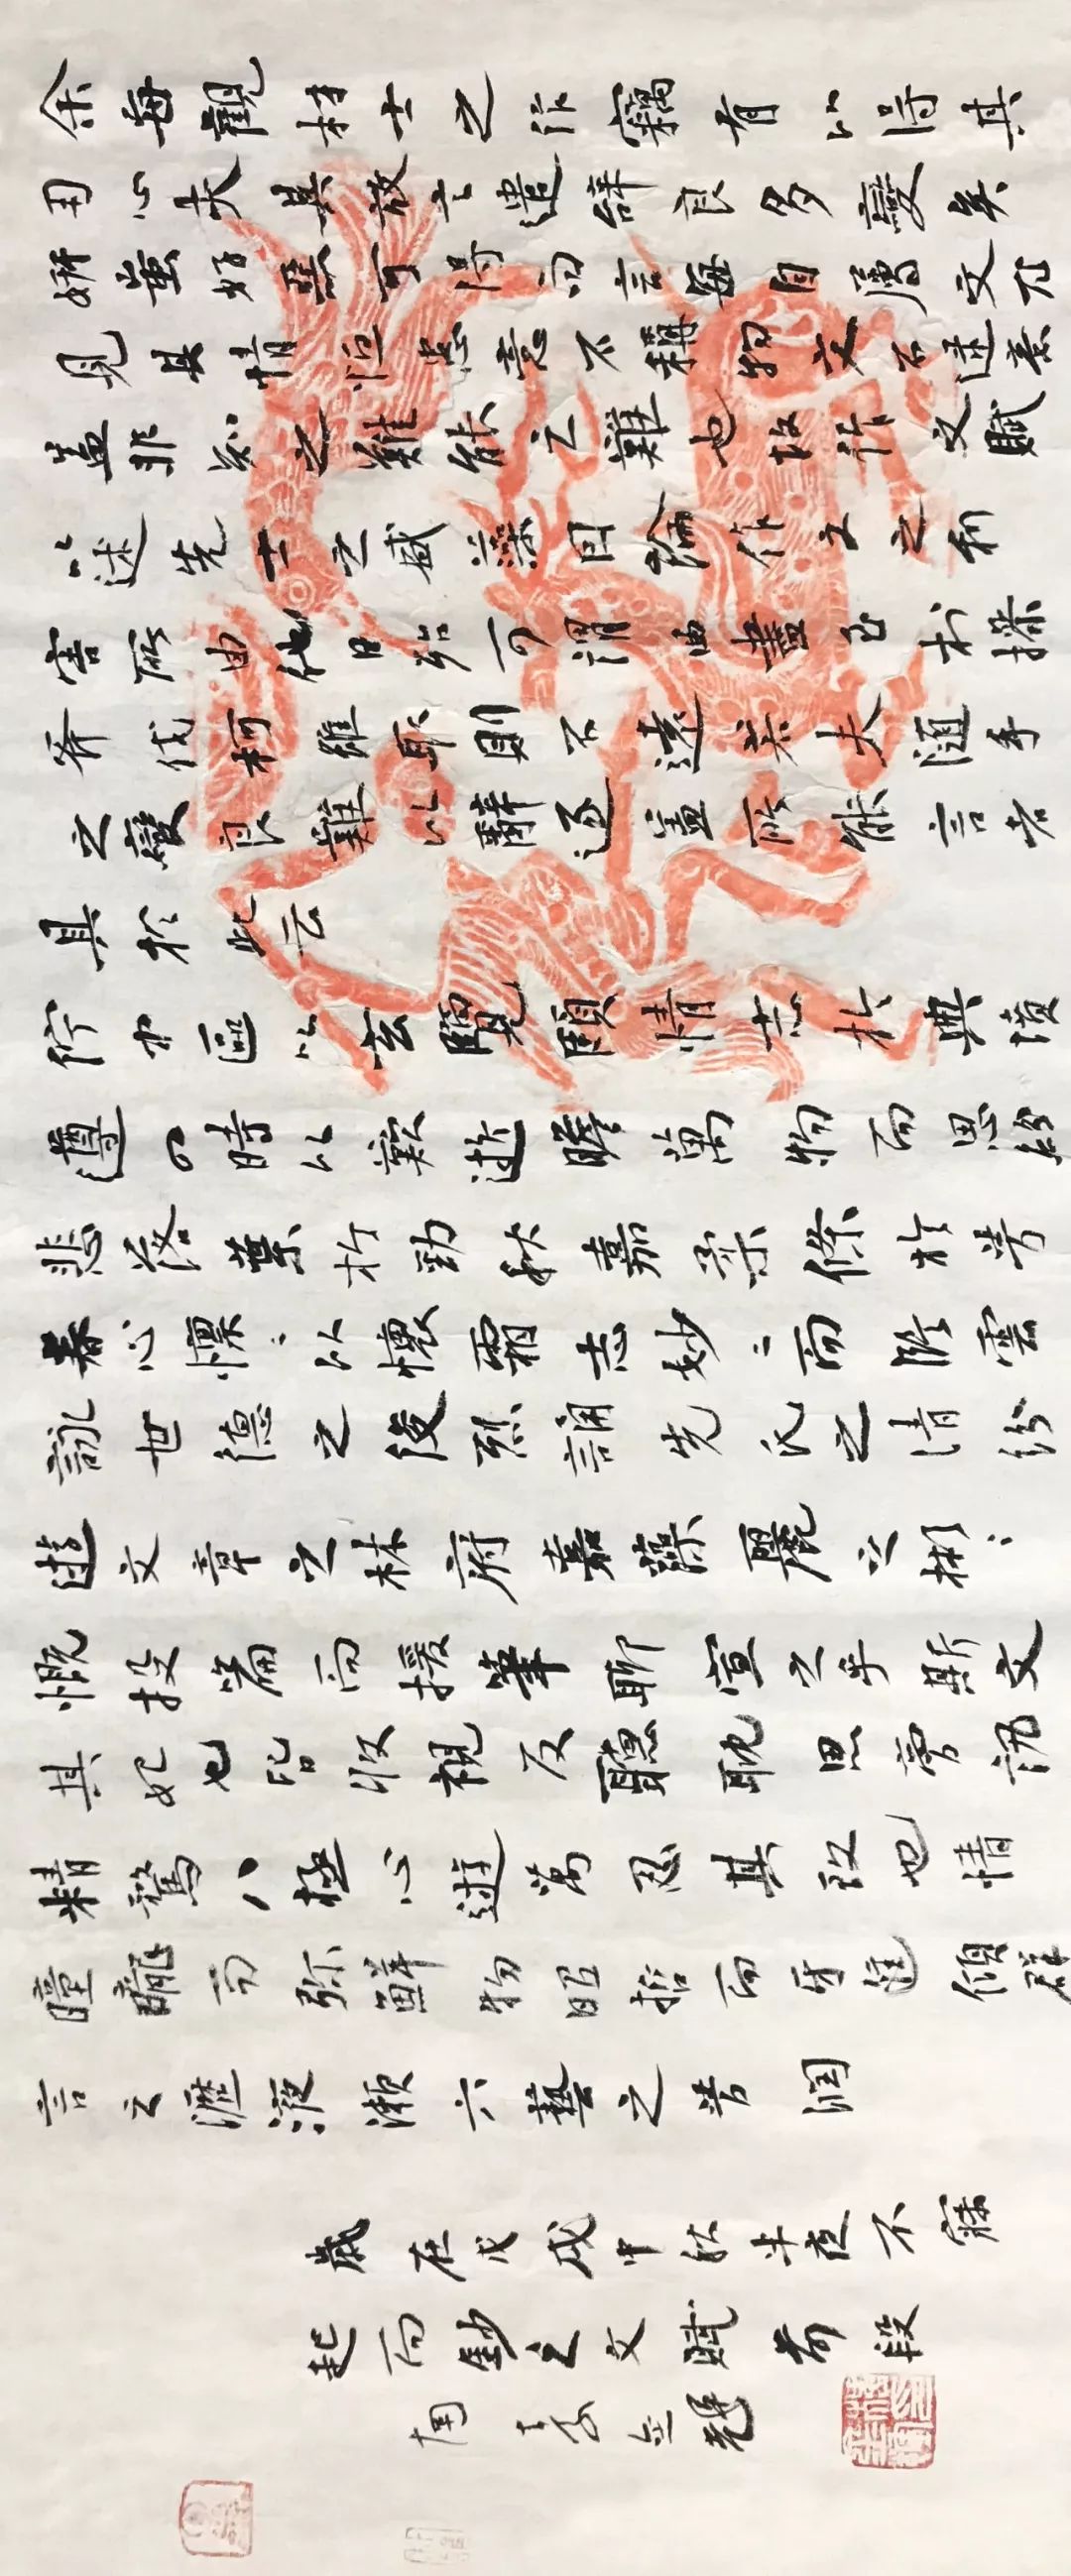 余每觀材士之作竊有以得其
用心夫其放言遣辭良多變矣
妍蚩好惡可得而言每自屬文尤
見其情恒患意不稱物文不逮意
蓋非知之難能之難也故作文賦
以述先士之盛藻因論作文之利
害所由他日殆可謂曲盡至於操
斧伐柯雖取則不遠若夫隨手
之變良難以辭逐蓋所能言者
具於此云
佇中區以玄覽頤情志於典墳
遵四時以歎逝瞻萬物而思紛
悲落葉於勁秋嘉柔條於芳
春心懍〻以懷霜志妙〻而臨雲
詠世德之俊烈誦先民之清芬
遊文章之林府嘉藻麗之彬〻
慨投篇而援筆聊宣之乎斯文
其始也皆收視反聽耽思旁訊
精騖八極心遊萬仞其致也情
曈曨而弥鮮物昭晢而互進傾群
言之瀝液漱六藝之芳潤
歲在戊戌中秋半夜不寐
起而鈔之文賦前段